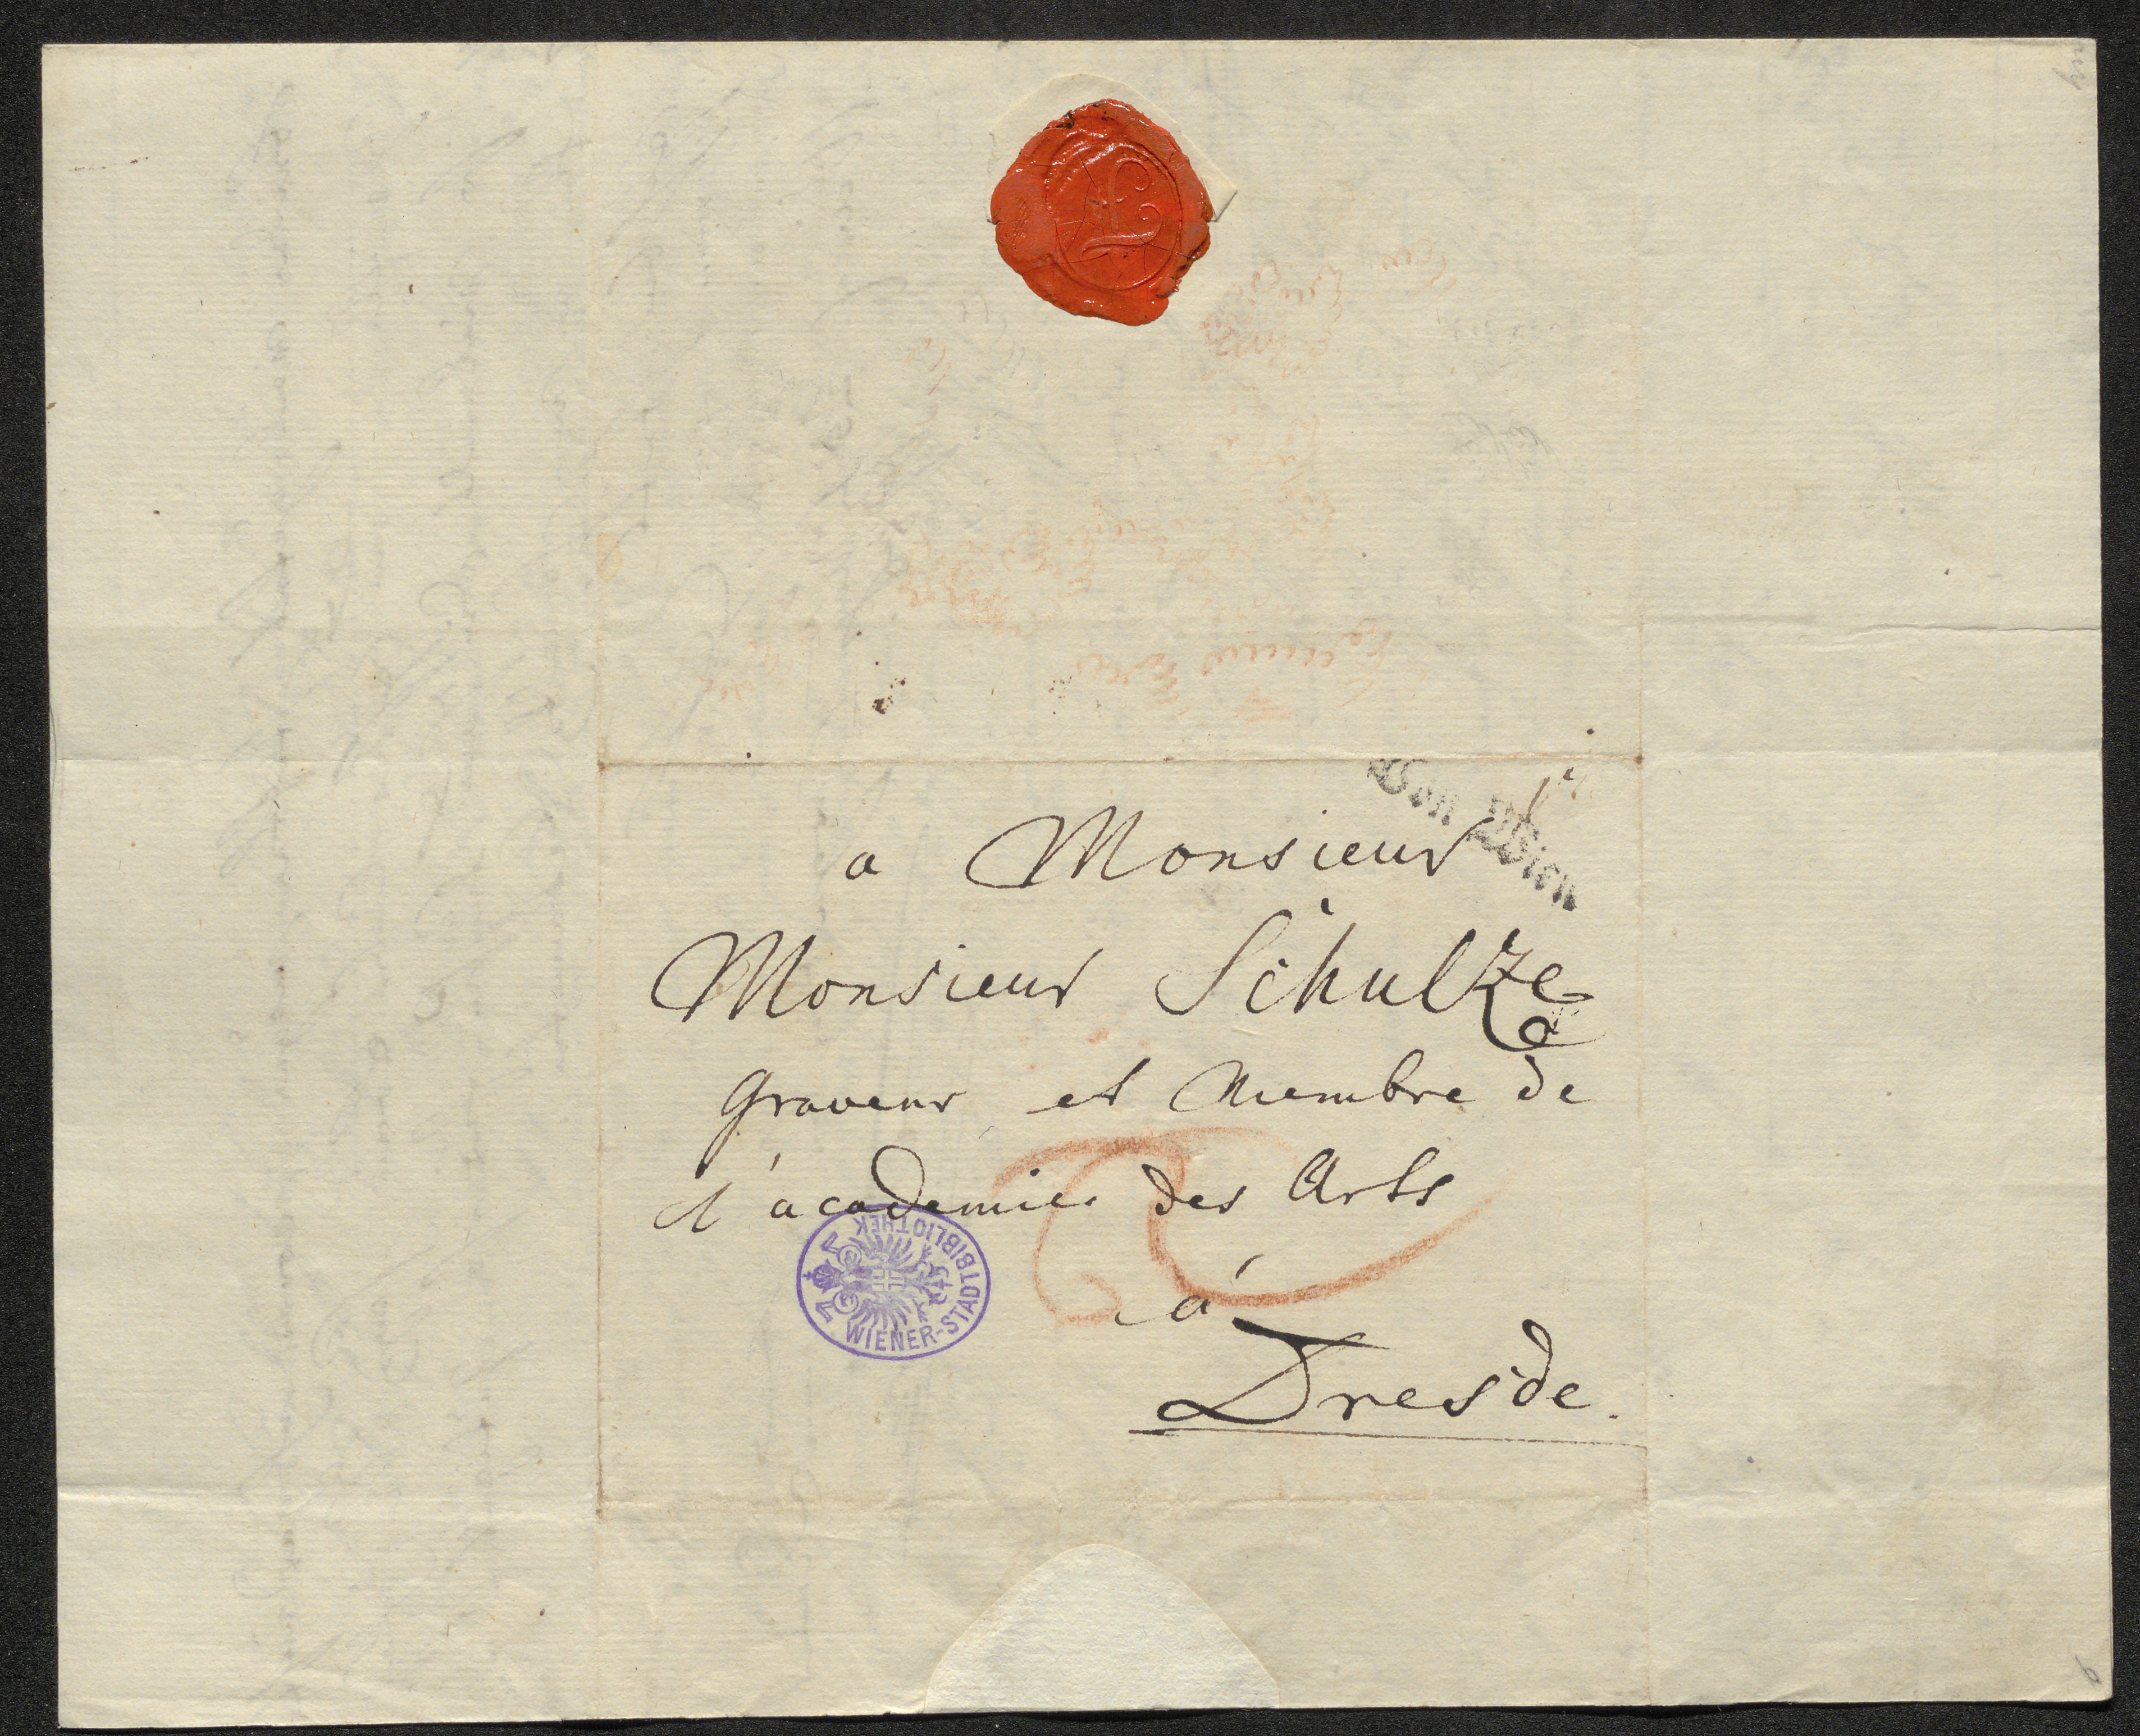 Von Wien
a Monsieur
Monsieur Schulze
Graveur et Membre de
l'academie des Arts
á
Dresde.
WIENER-STADTBIBLIOTHEK